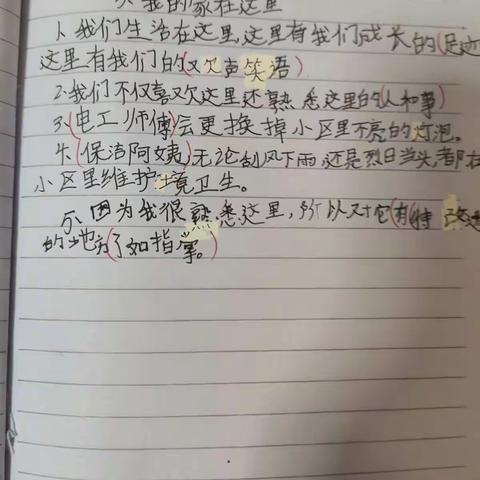 我的家在这里
1.我们生活在这里,这里有我们成长的(足迹
这里有我们的(欢声笑语)
2.我们不仅喜欢这里还熟悉这里的(人和事)
3.(电工师傅)会更换掉小区里不亮的灯泡。
4.(保洁阿姨)无论刮风下雨,还是烈日当头,都在
小区里维护环境卫生。
5.因为我很熟悉这里,所以对它(有特
的地方了如指掌。)